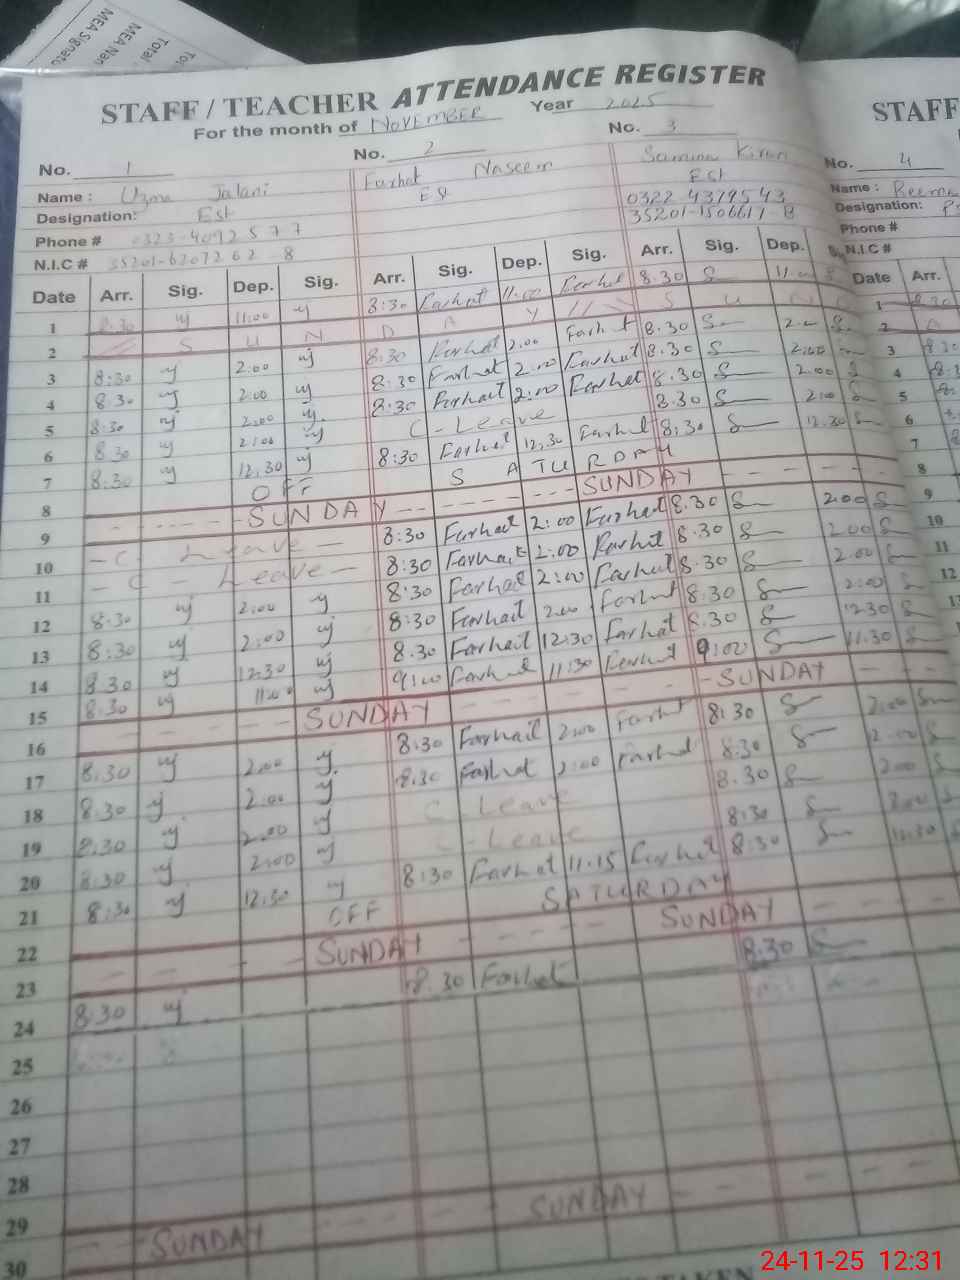 MEA Signato
MEA Nan
Total
STAFF / TEACHER ATTENDANCE REGISTER
For the month of NOVEMBER Year 2025
STAFF
No. 1 No. 2 No. 3 No. 4
Name : Uzma Jalani Farhat Naseem Samina Kiran Name : Reema
Designation: Est Est Est Designation:
Phone # 0323-4092577 0322 4379543 Phone #
N.I.C # 35201-6207262-8 35201-1506617-8 N.I.C #
Date Arr. Sig. Dep. Sig. Arr. Sig. Dep. Sig. Arr. Sig. Dep. Date Arr.
1 8:30 11:00 8:30 Farhat 11:00 Farhat 8.30 11:00 1
2 S U N D A Y S U N 2
3 8:30 2:00 8:30 Farhat 2:00 Farhat 8.30 2:00 3
4 8:30 2:00 8:30 Farhat 2:00 Farhat 8.30 2:00 4
5 8:30 2:00 8:30 Farhat 2:00 Farhat 8.30 2:00 5
6 8:30 2:00 C-Leave 8.30 2:00 6
7 8:30 12.30 8:30 Farhat 12.30 Farhat 8:30 12.30 7
8 OFF SATURDAY 8
9 SUNDAY SUNDAY 9
10 - C Leave - 8:30 Farhat 2:00 Farhat 8.30 2:00 10
11 - C - Leave - 8:30 Farhat 2:00 Farhat 8.30 2:00 11
12 8:30 2:00 8:30 Farhat 2:00 Farhat 8.30 2:00 12
13 8:30 2:00 8:30 Farhat 2:00 Farhat 8.30 2:00
14 8:30 12:30 8.30 Farhat 12:30 Farhat 8.30 12:30
15 8:30 11:30 9:00 Farhat 11:30 Farhat 9:00 11.30
16 SUNDAY SUNDAY
17 8:30 2:00 8:30 Farhat 2:00 Farhat 8:30 2:00
18 8:30 2:00 8:30 Farhat 2:00 Farhat 8.30 2:00
19 8:30 2:00 C Leave 8.30 2:00
20 8:30 2:00 C-Leave 8:30 2:00
21 8:30 12:30 8:30 Farhat 11.15 Farhat 8:30 12:30
22 OFF SATURDAY
23 SUNDAY SUNDAY
24 8:30 8.30 Farhat 8.30
25
26
27
28
29
30 SUNDAY SUNDAY
24-11-25 12:31